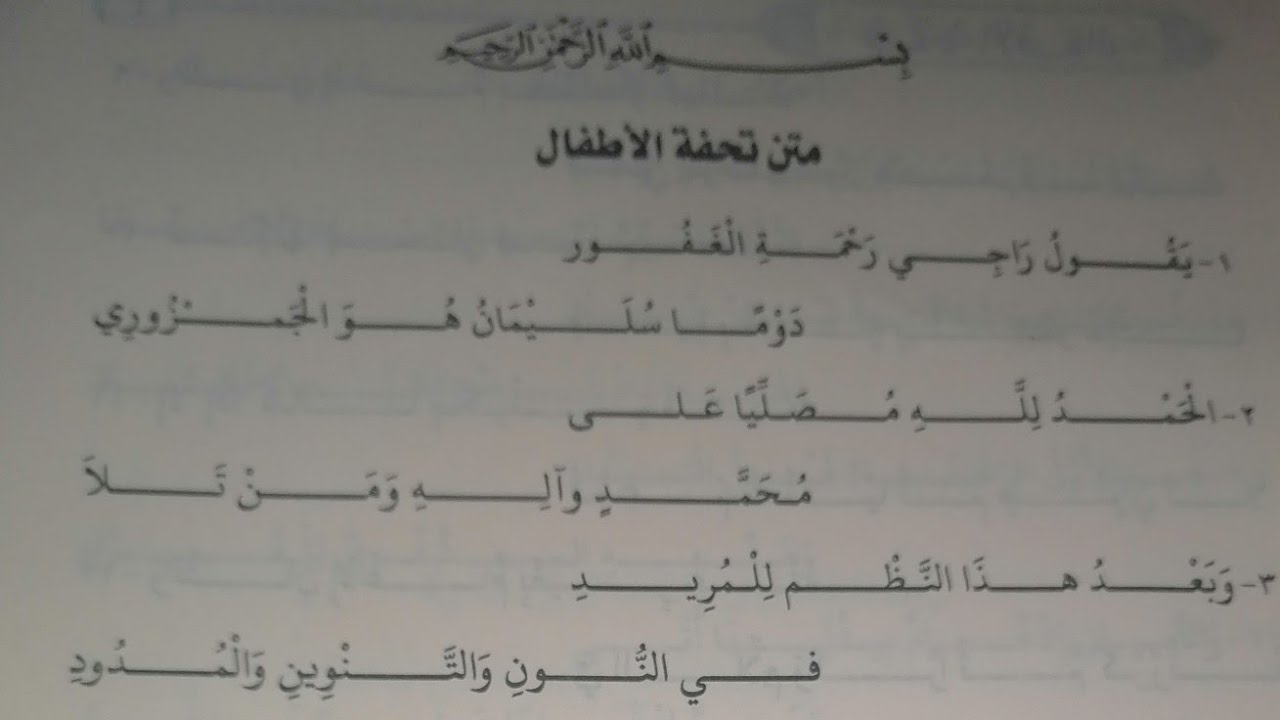 بِسْمِ اللَّهِ الرَّحْمَنِ الرَّحِيمِ
متن تحفة الأطفال
١- يَقُـولُ رَاجِـي رَحْمَـةِ الْغَفُـور
دَوْمًـا سُلَـيْمَانُ هُـوَ الْجَمْـزُورِي
٢- الْحَمْـدُ لِلَّـهِ مُـصَلِّيًا عَلـى
مُحَمَّـدٍ وآلِـهِ وَمَـنْ تَـلاَ
٣- وَبَعْـدُ هـذَا النَّظْـم لِلْمُرِيـدِ
فـي النُّـونِ وَالتَّـنْوِينِ وَالْمُـدُودِ